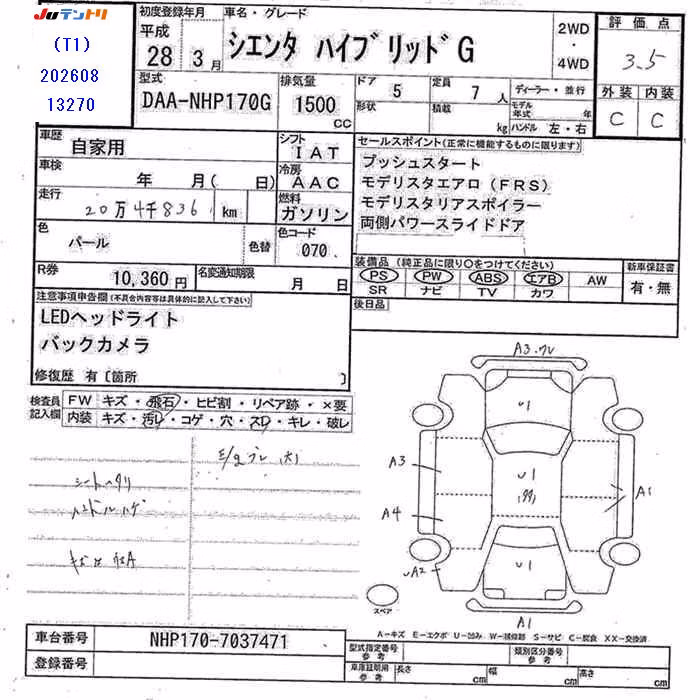 JUテントリ
(T1)
202608
13270
初度登録年月
平成
28 3月
車名・グレード
シエンタ ハイブリッドG
2WD
・
4WD
評価点
3.5
外装 内装
C C
型式
DAA-NHP170G
排気量
1500
CC
ドア
5
形状
定員
7 人
積載
kg
ディーラー・並行
モデル年式 年
ハンドル 左・右
車歴
自家用
シフト
IAT
車検
年 月( 日)
冷房
AAC
走行
20万4千836 km
燃料
ガソリン
色
パール
色替
色コード
070
R券
10,360円
名変通知期限
月 日
セールスポイント(正常に機能するものに限ります)
プッシュスタート
モデリスタエアロ(FRS)
モデリスタリアスポイラー
両側パワースライドドア
装備品(純正品に限り○をつけてください)
PS PW ABS エアB AW
SR ナビ TV カワ
新車保証書
有・無
後日品
注意事項申告欄(不具合内容等は具体的に記入して下さい)
LEDヘッドライト
バックカメラ
修復歴 有〔箇所 〕
検査員記入欄
FW キズ・飛石・ヒビ割・リペア跡・×要
内装 キズ・汚レ・コゲ・穴・スレ・キレ・破レ
シートヘタリ
ハンドルハゲ
A3
U1
U1
A3
A4
A1
UA2
U1
A1
スペア
A-キズ E-エクボ U-凹み W-補修跡 S-サビ C-腐食 XX-交換済
車台番号
NHP170-7037471
登録番号
型式指定番号
参考
類別区分番号
参考
車庫証明用
参考
長さ cm
幅 cm
高さ cm